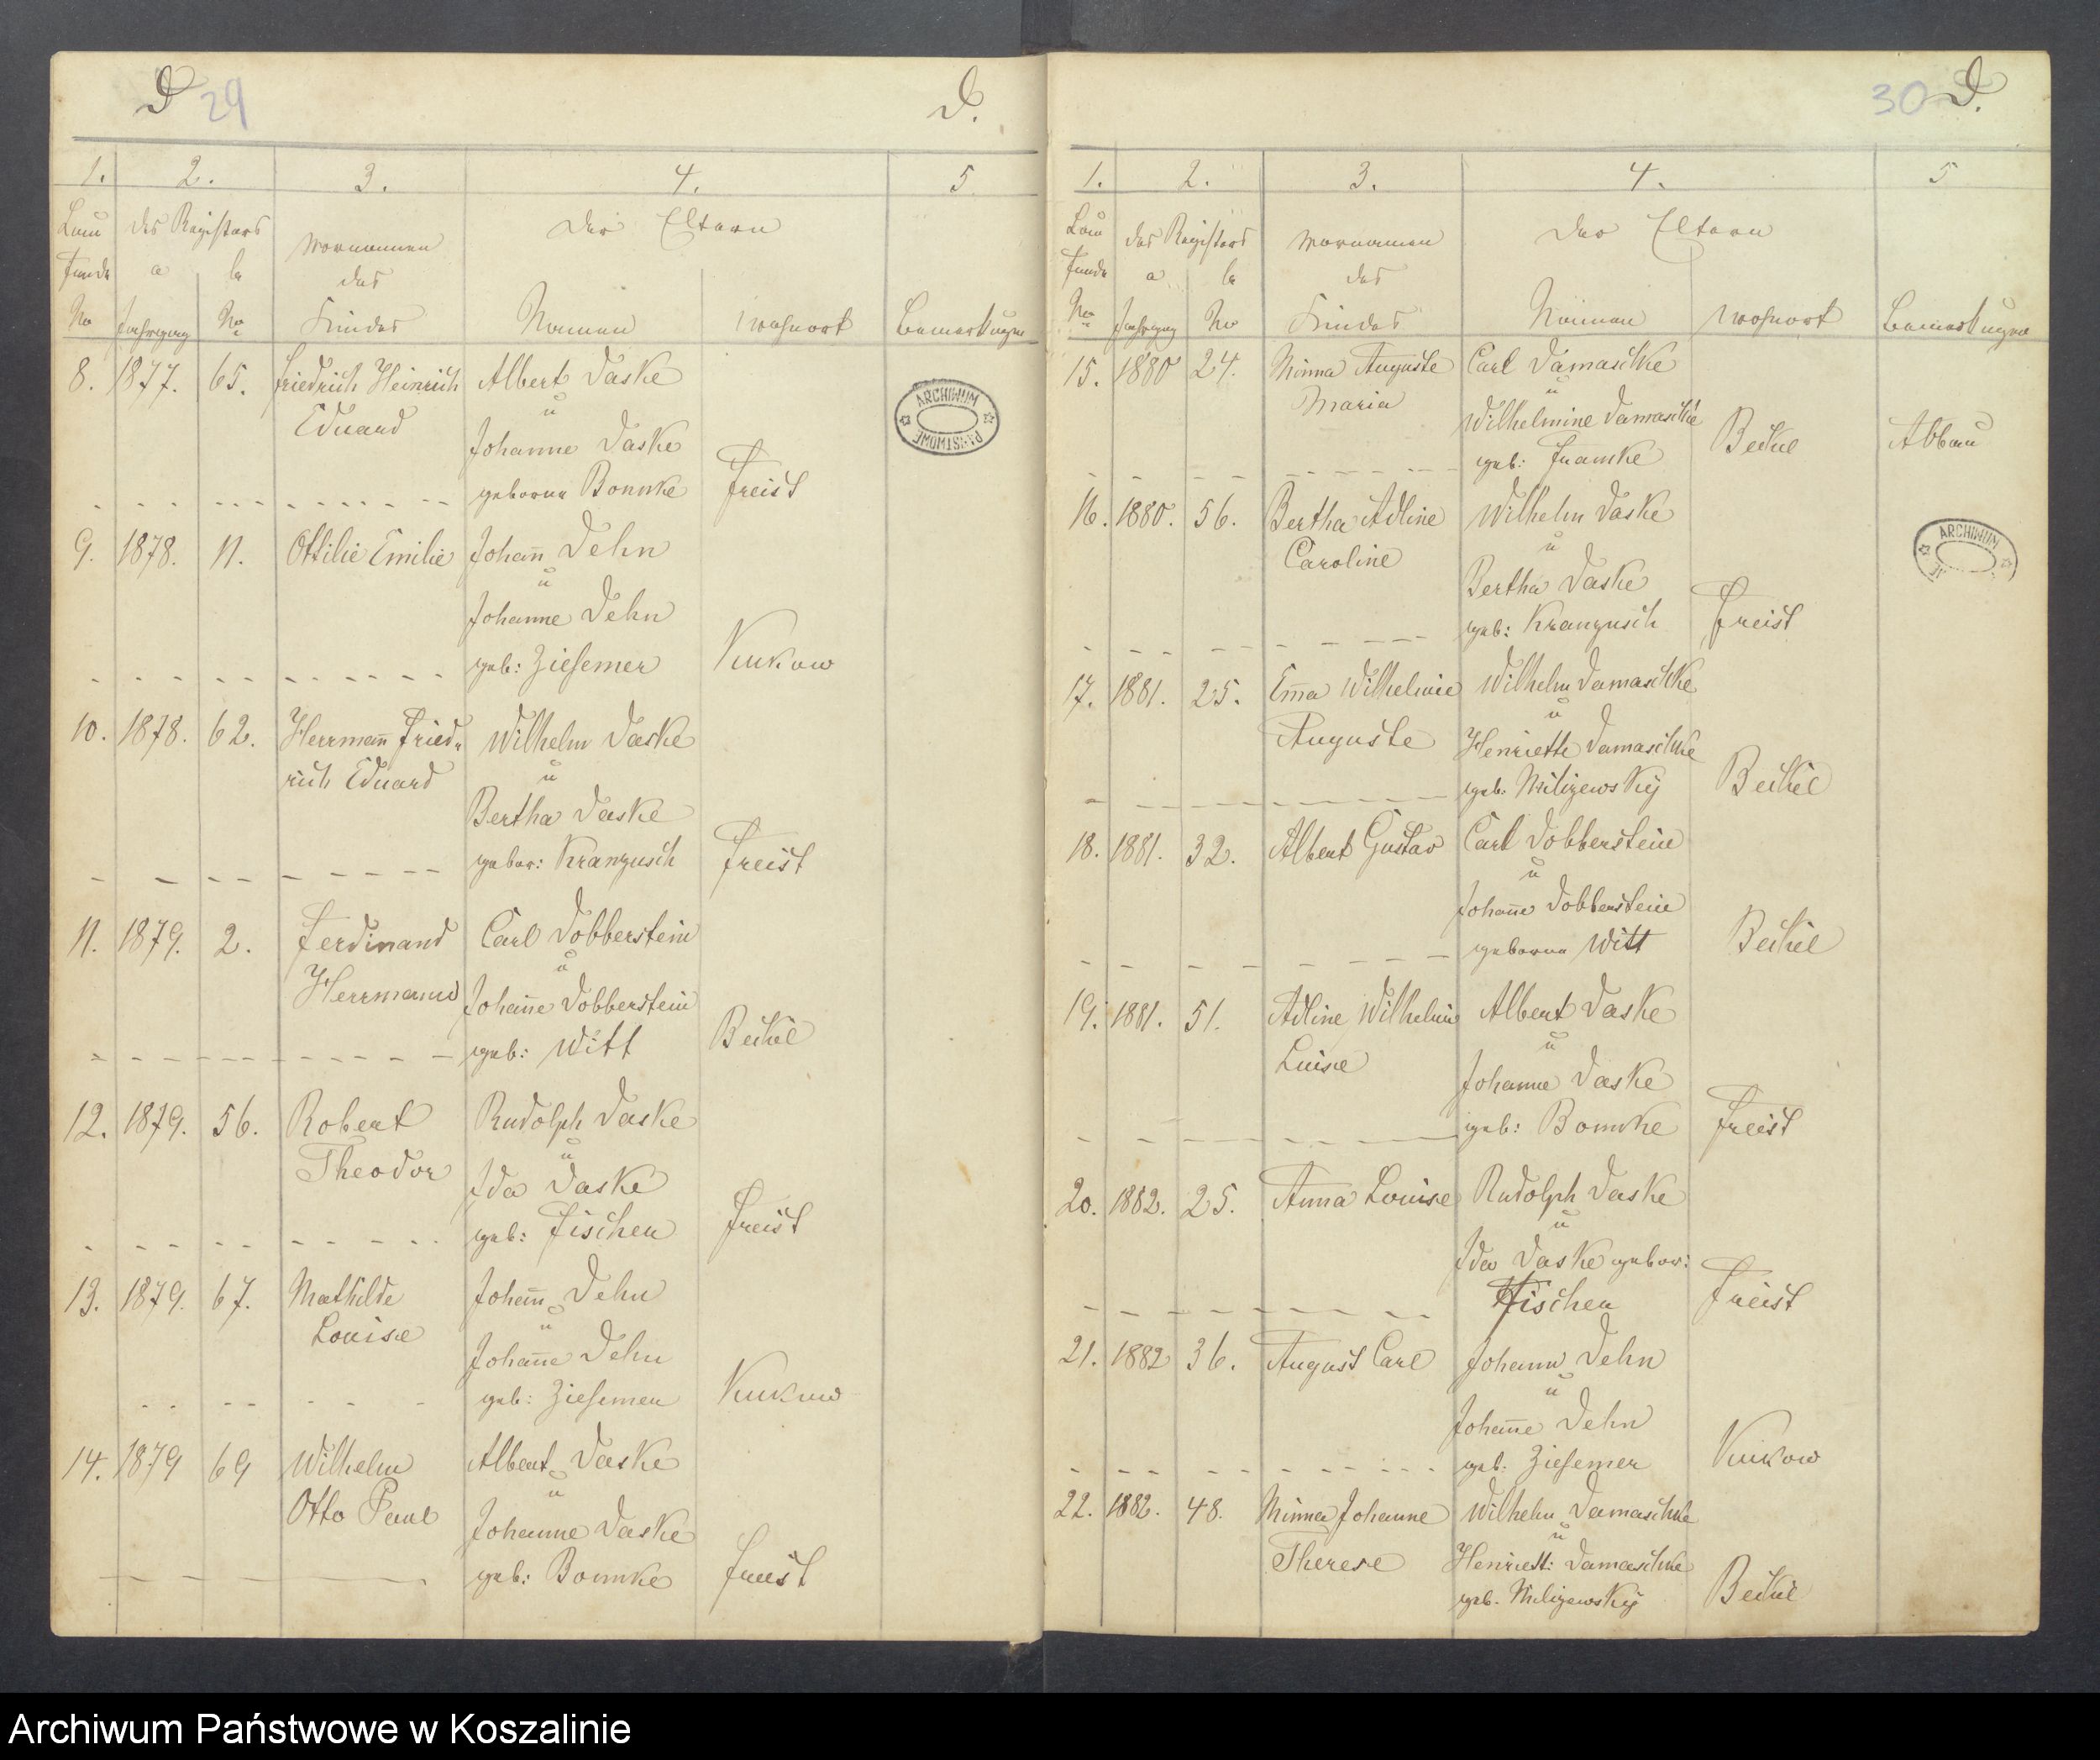 D 29 D.
1. 2. 3. 4. 5
Lau des Registers Vornamen Der Eltern
fende a b des
No Jahrgang No Kindes Namen Wohnort Bemerkungen
8. 1877. 65. Friedrich Heinrich Albert Daske
Eduard u
Johanne Daske
geborne Bonnke Freist
9. 1878. 11. Ottilie Emilie Johan̅ Dehn
u
Johanne Dehn
geb: Ziesemer Kukow
10. 1878. 62. Herrman̅ Fried- Wilhelm Daske
rich Eduard u
Bertha Daske
gebor: Kranzusch Freist
11. 1879. 2. Ferdinand Carl Dobberstein
u
Herrmann Johan̅e Dobberstein
geb: Witt Beckel
12. 1879. 56. Robert Rudolph Daske
u
Theodor Ida Daske
geb: Fischer Freist
13. 1879. 67. Mathilde Johan̅ Dehn
Louise u
Johan̅e Dehn
geb: Ziesemer Kukow
14. 1879 69 Wilhelm Albert Daske
u
Otto Paul Johanne Daske
geb: Bonnke Freist
ARCHIWUM PAŃSTWOWE
30 D.
1. 2. 3. 4. 5
Lau des Registers Vornamen Der Eltern
fende a b des
No Jahrgang No Kindes Namen Wohnort Bemerkungen
15. 1880 24. Minna Auguste Carl Damaschke
Maria u
Wilhelmine Damaschke
geb: Framke Beckel Abbau
16. 1880. 56. Bertha Adline Wilhelm Daske
Caroline u
Bertha Daske
geb: Kranzusch Freist
17. 1881. 25. Em̅a Wilhelmie Wilhelm Damaschke
u
Auguste Henriette Damaschke
geb. Milizewsky Beckel
18. 1881. 32. Albert Gustav Carl Dobberstein
u
Johan̅e Dobberstein
geborne Witt Beckel
19. 1881. 51. Adline Wilhelmie Albert Daske
u
Luise Johanne Daske
geb: Bonnke Freist
20. 1882. 25. Anna Louise Rudolph Daske
u
Ida Daske gebor:
Fischer Freist
21. 1882 36. August Carl Johann Dehn
u
Johan̅e Dehn
geb. Ziesemer Kukow
22. 1882. 48. Minna Johanne Wilhelm Damaschke
u
Therese Henriett: Damaschke
geb. Milizewsky Beckel
ARCHIWUM
Archiwum Państwowe w Koszalinie